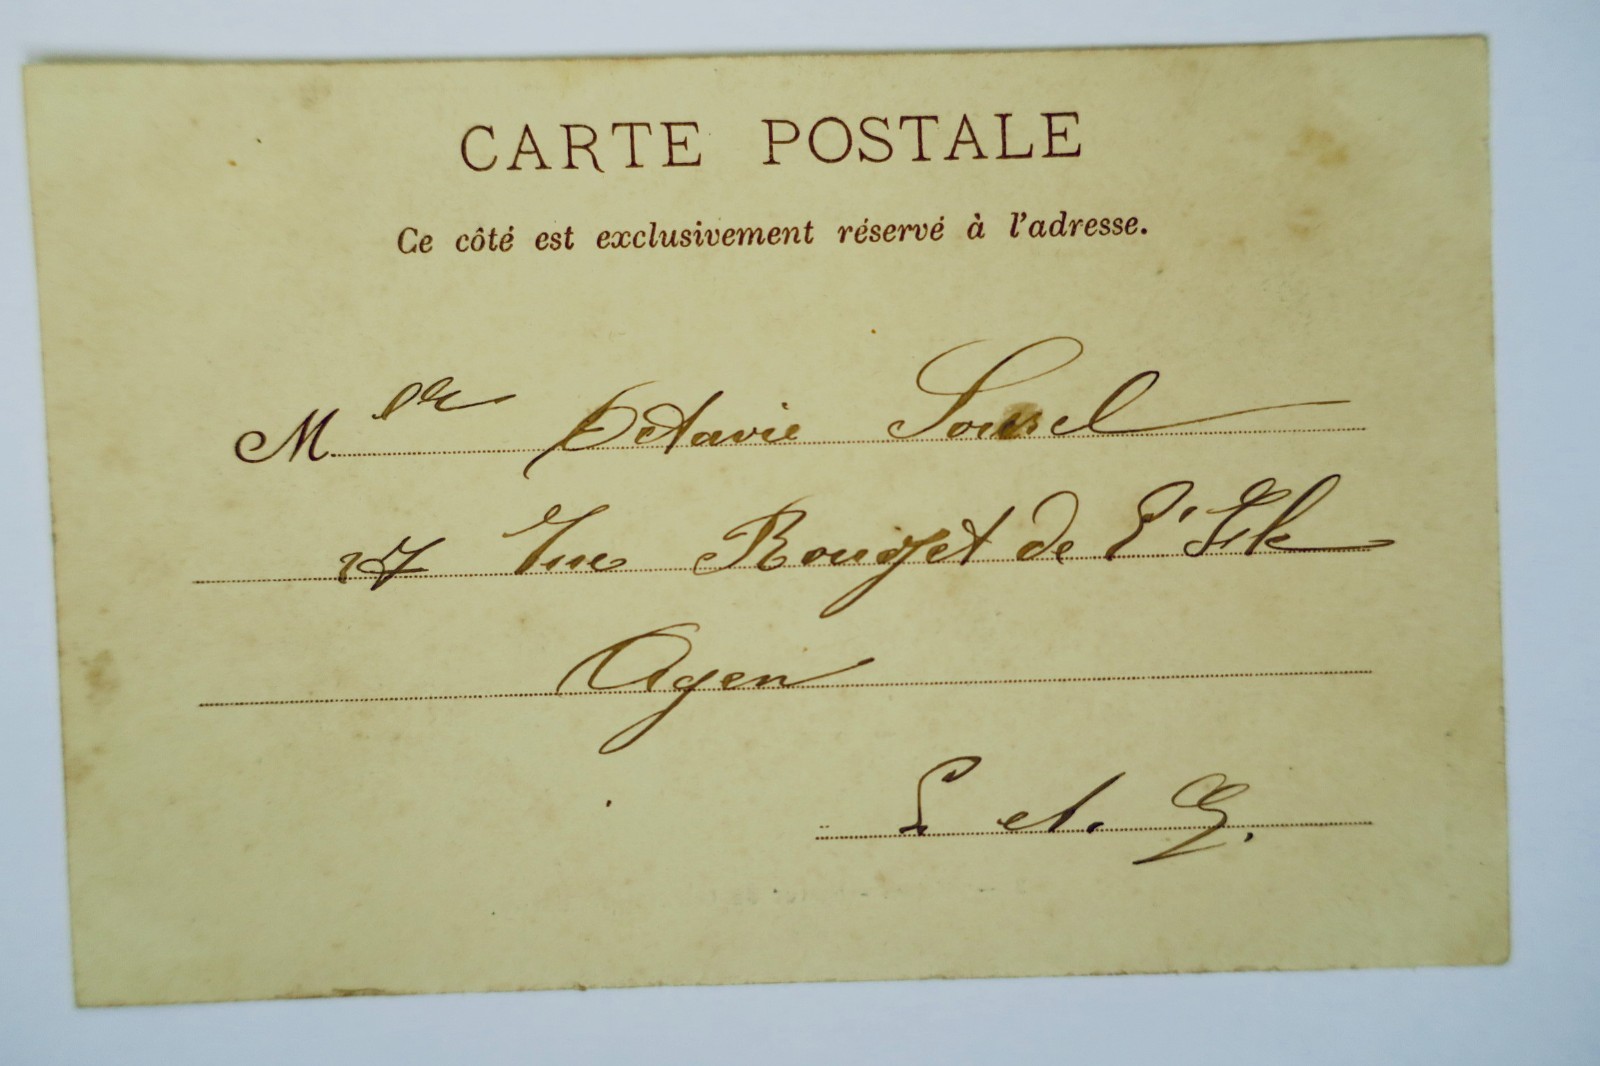 CARTE POSTALE
Ce côté est exclusivement réservé à l'adresse.
Mlle Octavie
27 rue Rouget de l'Isle
Agen
L et. G.